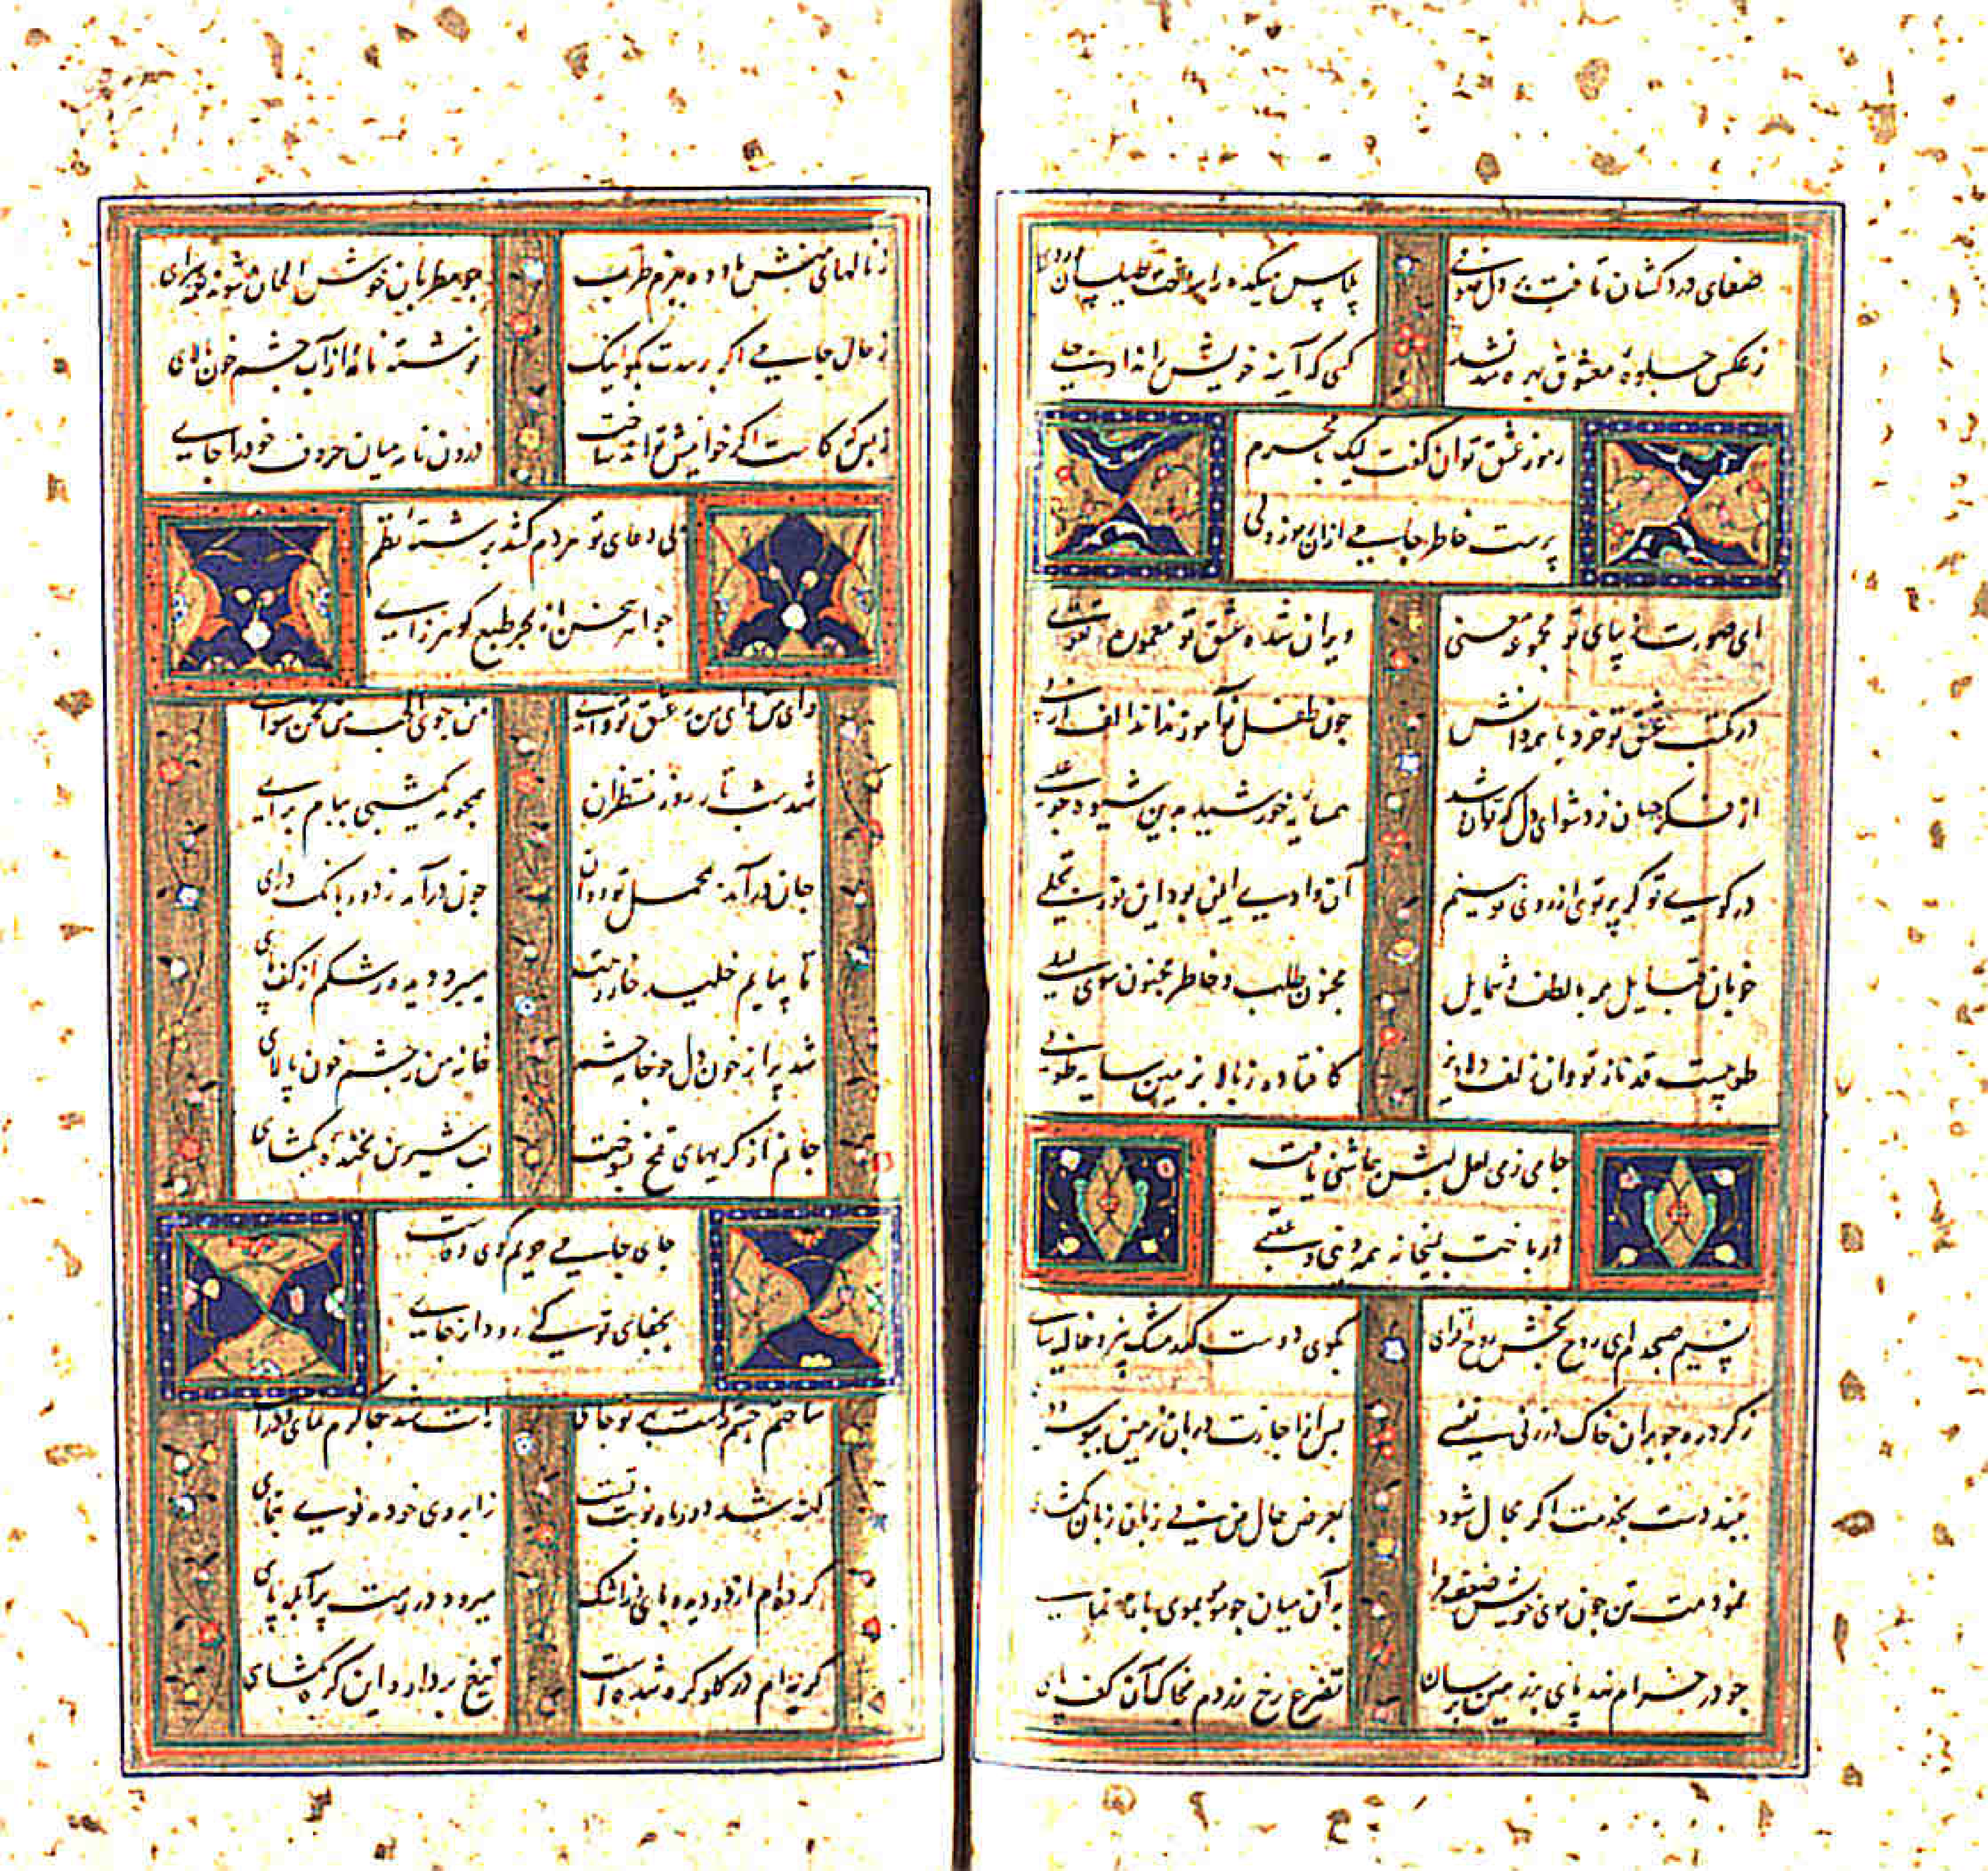 صفای درد کشان تافت بر دل صوفی
پلاس میکده را به ز طیلسان
ز عکس جلوه معشوق بهره مند نشد
کسی که آینه خویش را نداد جلی
رموز عشق توان گفت لیک با محرم
پرست خاطر جامی ازان رموز ولی
ای صورت زیبای تو مجموعه حسنی
ویران شده عشق تو معموره تقوی
در مکتب عشق تو خرد با همه دانش
چون طفل نوآموز نداند الف از بی
از فکر جهان فرد شو ای دل که توان شد
همسایه خورشید بدین شیوه چو عیسی
در کوی تو گر پرتوی از روی تو بینم
آن وادی ایمن بود این نور تجلی
خوبان قبایل همه با لطف و شمایل
مجنون طلبند و خاطر مجنون سوی لیلی
طوبیست قد ناز تو وان زلف دلاویز
کافتاده ز بالا بزمین سایه طوبی
جامی ز می لعل لبش چاشنی یافت
در باخت بمیخانه همه دنیی و عقبی
نسیم صبحدم ای روح بخش روح افزای
بکوی دوست گذر مشک بیز و غالیه سای
ز گرد ره چو بران خاک در زنی نفسی
پس از اجازت دربان زمین ببوس و درآی
ببند دست بخدمت اگر مجال شود
بعرض حال من بی زبان زبان بگشای
نمودمت تن چون موی خویش ضعف مرا
به آن میان چو مو موبموی باز نمای
چو در خرام نهد پای بر زمین برسان
تضرع رخ زردم بخاک آن کف پای
ز نالهای منش یاد ده ببزم طرب
چو مطربان خوش الحان شوند نغمه سرای
ز حال جامی اگر پرسدت بگو اینک
نوشته نامه از آب چشم خون پالای
ز بس که کاست اگر خوانیش توانی ساخت
درون نامه میان حروف خود را جای
پی دعای تو هر دم کشد برشته نظم
جواهر سخن از بحر طبع گوهر زای
وای من وای من ز عشق تو وای
شد شب تار روز منتظران
همچو مه یکشبی ببام برای
جان درآمد ز محمل تو روان
چون درآمد ز دور بانک درای
تا بپایم خلید خار رهت
میبرد دیده رشکم از کف پای
شد پر از خون دل چو خانه چشم
خانه من ز چشم خون پالای
جانم از گریهای تلخ بسوخت
لب شیرین بخنده بگشای
جای جامی حریم کوی وفاست
بجفای تو کی رود از جای
ساختم چشم راست بهر تو جای
کهنه شد دور ماه نوبت تست
ز ابروی خود مه نوی بنمای
کرده ام از دو دیده پای ز اشک
میرود در رهت پر آبله پای
گریه ام در گلو گره شده است
تیغ بردار و این گره بگشای